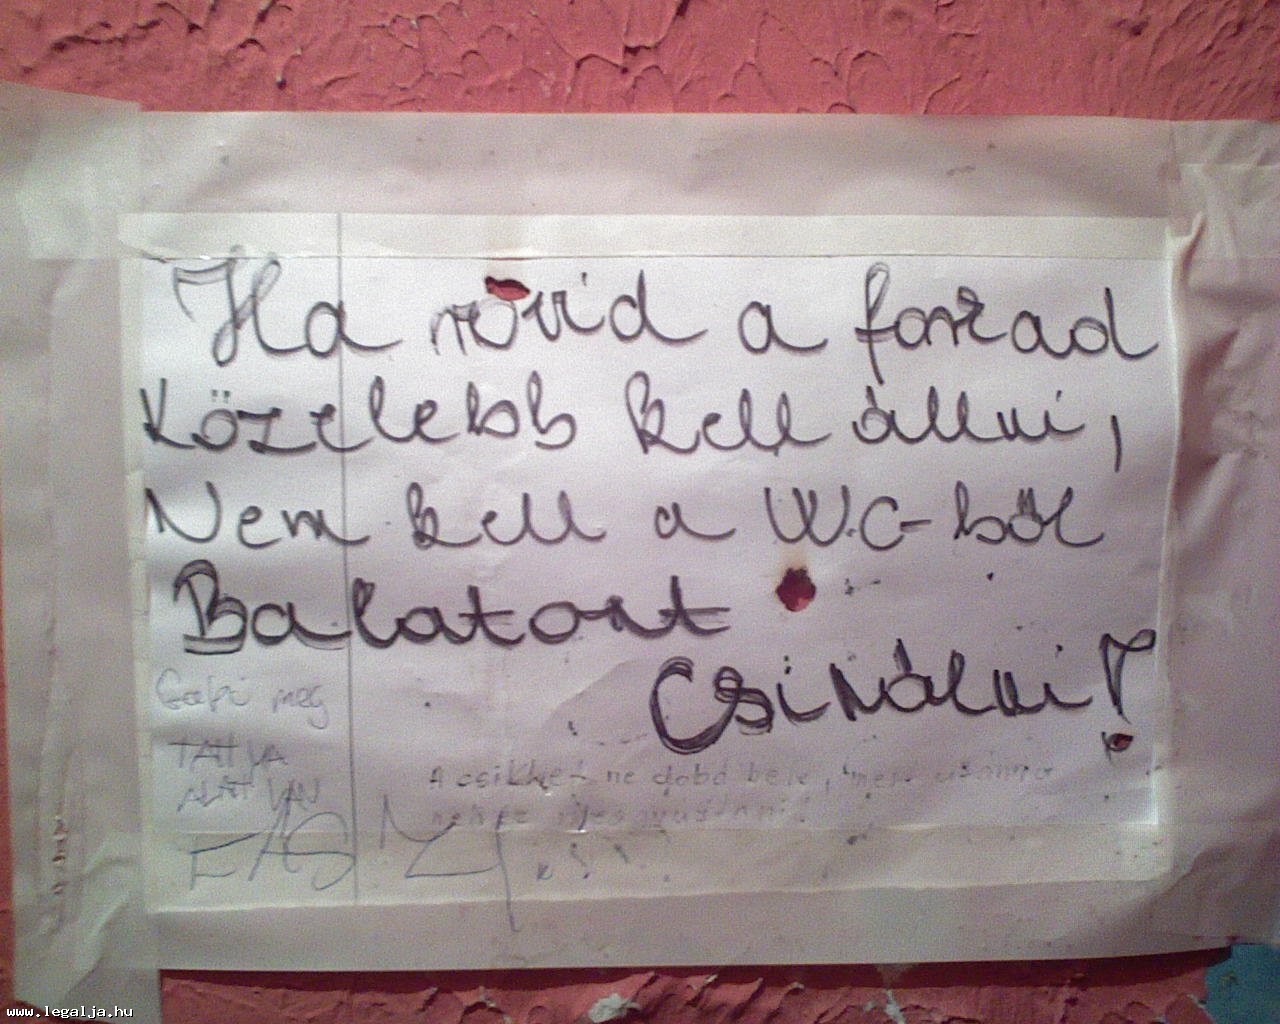 Ha rövid a farkad
Közelebb kell állni,
Nem kell a WC-ből
Balatont
Csinálni!
meg
ALATT VAN
A csikket ne dobd bele, mert utánna
nehéz meggyújtani!
EASY
www.legalja.hu